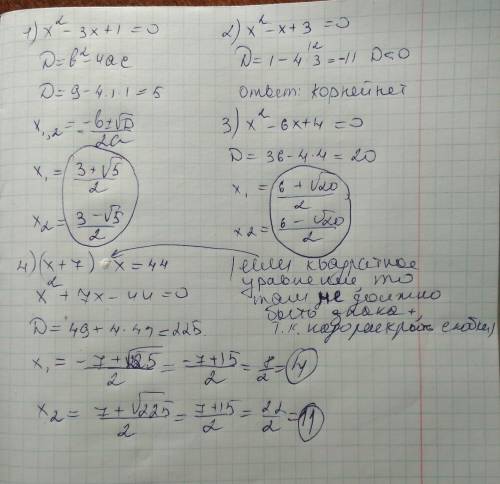 1) x² - 3x + 1 = 0
D = b² - 4ac
D = 9 - 4·1·1 = 5
x₁,₂ = (-b ± √D)/2a
x₁ = (3 + √5)/2
x₂ = (3 - √5)/2
2) x² - x + 3 = 0
D = 1 - 4·3 = -11 D < 0
12
ответ: корней нет
3) x² - 6x + 4 = 0
D = 36 - 4·4 = 20
x₁ = (6 + √20)/2
x₂ = (6 - √20)/2
4) (x + 7) x = 44
x² + 7x - 44 = 0
D = 49 + 4·49 = 225
x₁ = -(7 + √225)/2 = (-7 + 15)/2 = 8/2 = 4
x₂ = (7 + √225)/2 = (7 + 15)/2 = 22/2 = 11
если квадратное
уравнение то
там не должно
быть знака +,
т.к. надо раскрыть скобки